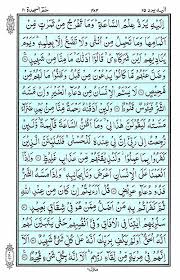 اليه يرد ٢٥
حم السجدة ٤١
اِلَيْهِ يُرَدُّ عِلْمُ السَّاعَةِ وَمَا تَخْرُجُ مِنْ ثَمَرٰتٍ مِّنْ
اَكْمَامِهَا وَمَا تَحْمِلُ مِنْ اُنْثٰى وَلَا تَضَعُ اِلَّا بِعِلْمِهٖ وَيَوْمَ
يُنَادِيْهِمْ اَيْنَ شُرَكَآءِيْ قَالُوْٓا اٰذَنّٰكَ مَا مِنَّا مِنْ شَهِيْدٍ
وَضَلَّ عَنْهُمْ مَّا كَانُوْا يَدْعُوْنَ مِنْ قَبْلُ وَظَنُّوْا مَا لَهُمْ مِّنْ
مَّحِيْصٍ لَا يَسْئَمُ الْاِنْسَانُ مِنْ دُعَآءِ الْخَيْرِ وَاِنْ مَّسَّهُ
الشَّرُّ فَيَئُوْسٌ قَنُوْطٌ وَلَئِنْ اَذَقْنٰهُ رَحْمَةً مِّنَّا مِنْ بَعْدِ ضَرَّآءَ
مَسَّتْهُ لَيَقُوْلَنَّ هٰذَا لِيْ وَمَآ اَظُنُّ السَّاعَةَ قَآئِمَةً وَّلَئِنْ
رُّجِعْتُ اِلٰى رَبِّيْٓ اِنَّ لِيْ عِنْدَهٗ لَلْحُسْنٰى فَلَنُنَبِّئَنَّ الَّذِيْنَ
كَفَرُوْا بِمَا عَمِلُوْا وَلَنُذِيْقَنَّهُمْ مِّنْ عَذَابٍ غَلِيْظٍ وَاِذَآ
اَنْعَمْنَا عَلَى الْاِنْسَانِ اَعْرَضَ وَنَاٰ بِجَانِبِهٖ وَاِذَا مَسَّهُ الشَّرُّ
فَذُوْ دُعَآءٍ عَرِيْضٍ قُلْ اَرَءَيْتُمْ اِنْ كَانَ مِنْ عِنْدِ اللّٰهِ ثُمَّ
كَفَرْتُمْ بِهٖ مَنْ اَضَلُّ مِمَّنْ هُوَ فِيْ شِقَاقٍ بَعِيْدٍ
سَنُرِيْهِمْ اٰيٰتِنَا فِي الْاٰفَاقِ وَفِيْٓ اَنْفُسِهِمْ حَتّٰى يَتَبَيَّنَ
لَهُمْ اَنَّهُ الْحَقُّ اَوَلَمْ يَكْفِ بِرَبِّكَ اَنَّهٗ عَلٰى كُلِّ شَيْءٍ
شَهِيْدٌ اَلَآ اِنَّهُمْ فِيْ مِرْيَةٍ مِّنْ لِّقَآءِ رَبِّهِمْ اَلَآ اِنَّهٗ بِكُلِّ شَيْءٍ مُّحِيْطٌ